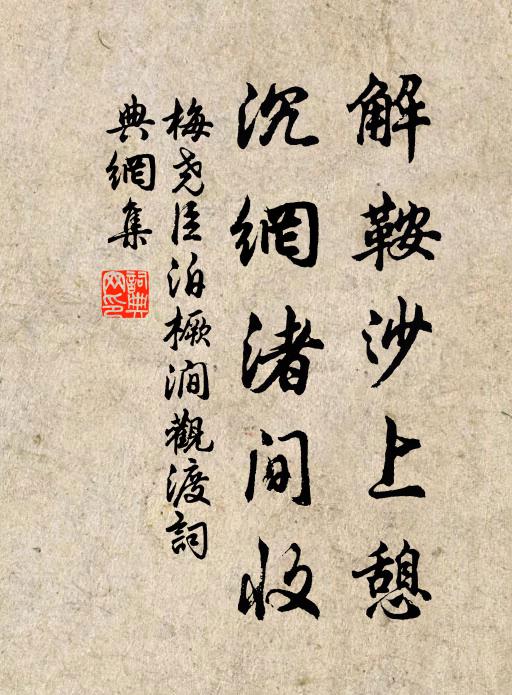 解鞍沙上憩
沉網渚間收
梅尧臣泊橛澗觀渡詞
典網集
詞典网印